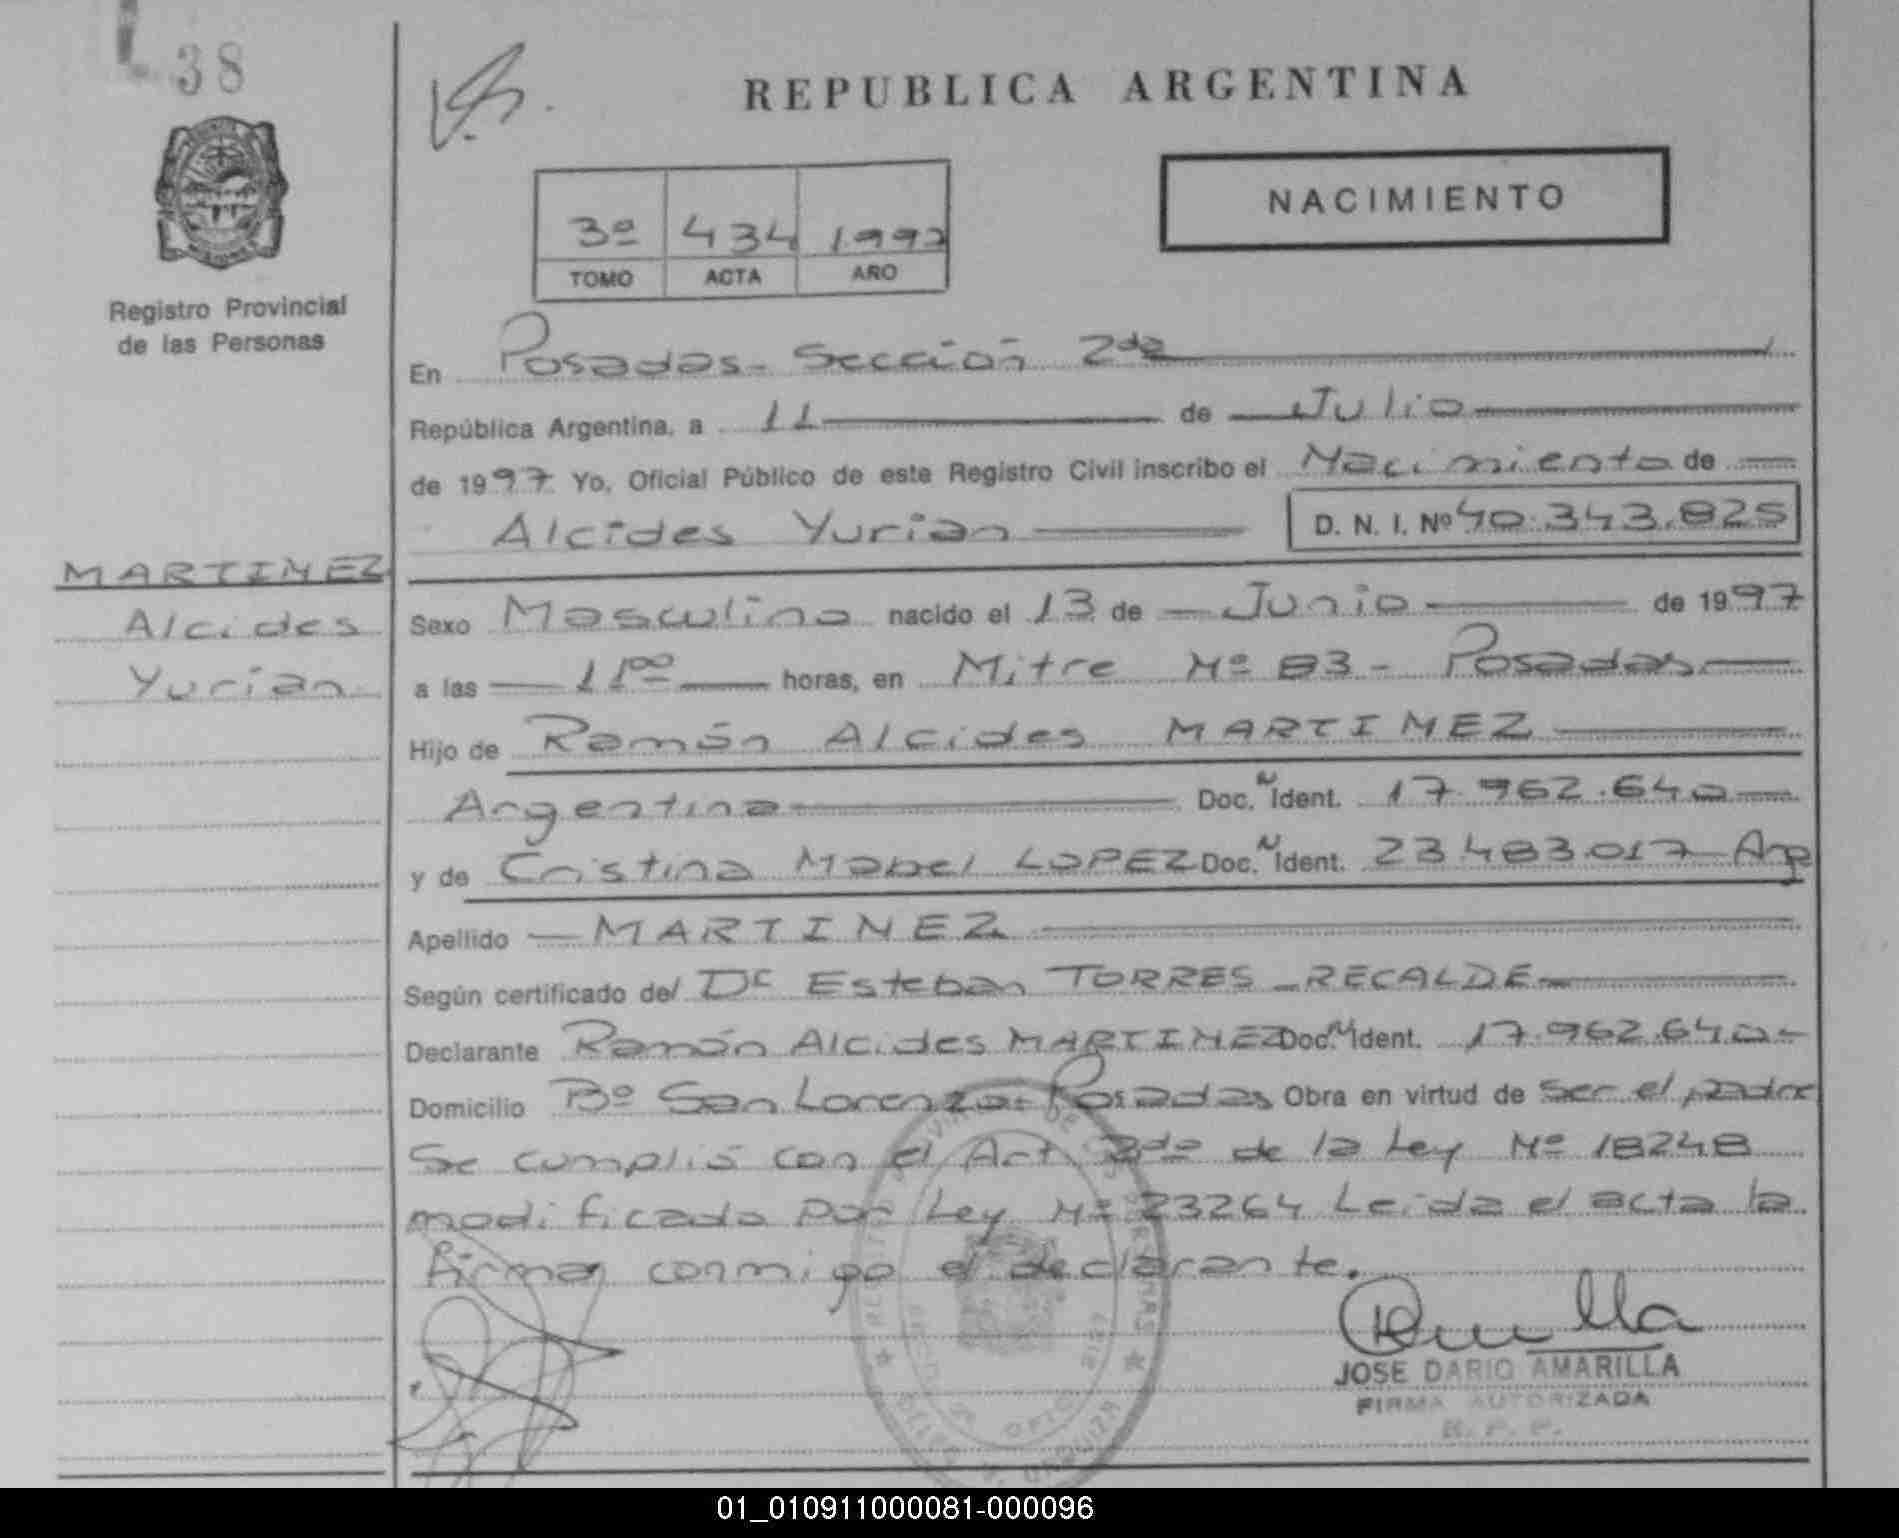 38
REPUBLICA ARGENTINA
NACIMIENTO
3º 434 1997
TOMO ACTA AÑO
Registro Provincial
de las Personas
En Posadas - Sección 2da
República Argentina, a 11 de Julio
de 1997 Yo, Oficial Público de este Registro Civil inscribo el Nacimiento de
Alcides Yurian D. N. I. Nº 40.343.825
MARTINEZ
Alcides
Yurian
Sexo Masculino nacido el 13 de Junio de 1997
a las 11oo horas, en Mitre Nº 83 - Posadas
Hijo de Ramón Alcides MARTINEZ
Argentina Doc. N Ident. 17.962.640
y de Cristina Mabel LOPEZ Doc. N Ident. 23.483.017 - Arg
Apellido MARTINEZ
Según certificado del Dr Esteban TORRES - RECALDE
Declarante Ramón Alcides MARTINEZ Doc. N Ident. 17.962.640 -
Domicilio Bº San Lorenzo - Posadas Obra en virtud de ser el padre
Se cumplió con el Art 2do de la Ley Nº 18248
modificado por Ley Nº 23264 Leida el acta la
firman conmigo el declarante.
JOSE DARIO AMARILLA
FIRMA AUTORIZADA
R. P. P.
01_010911000081-000096